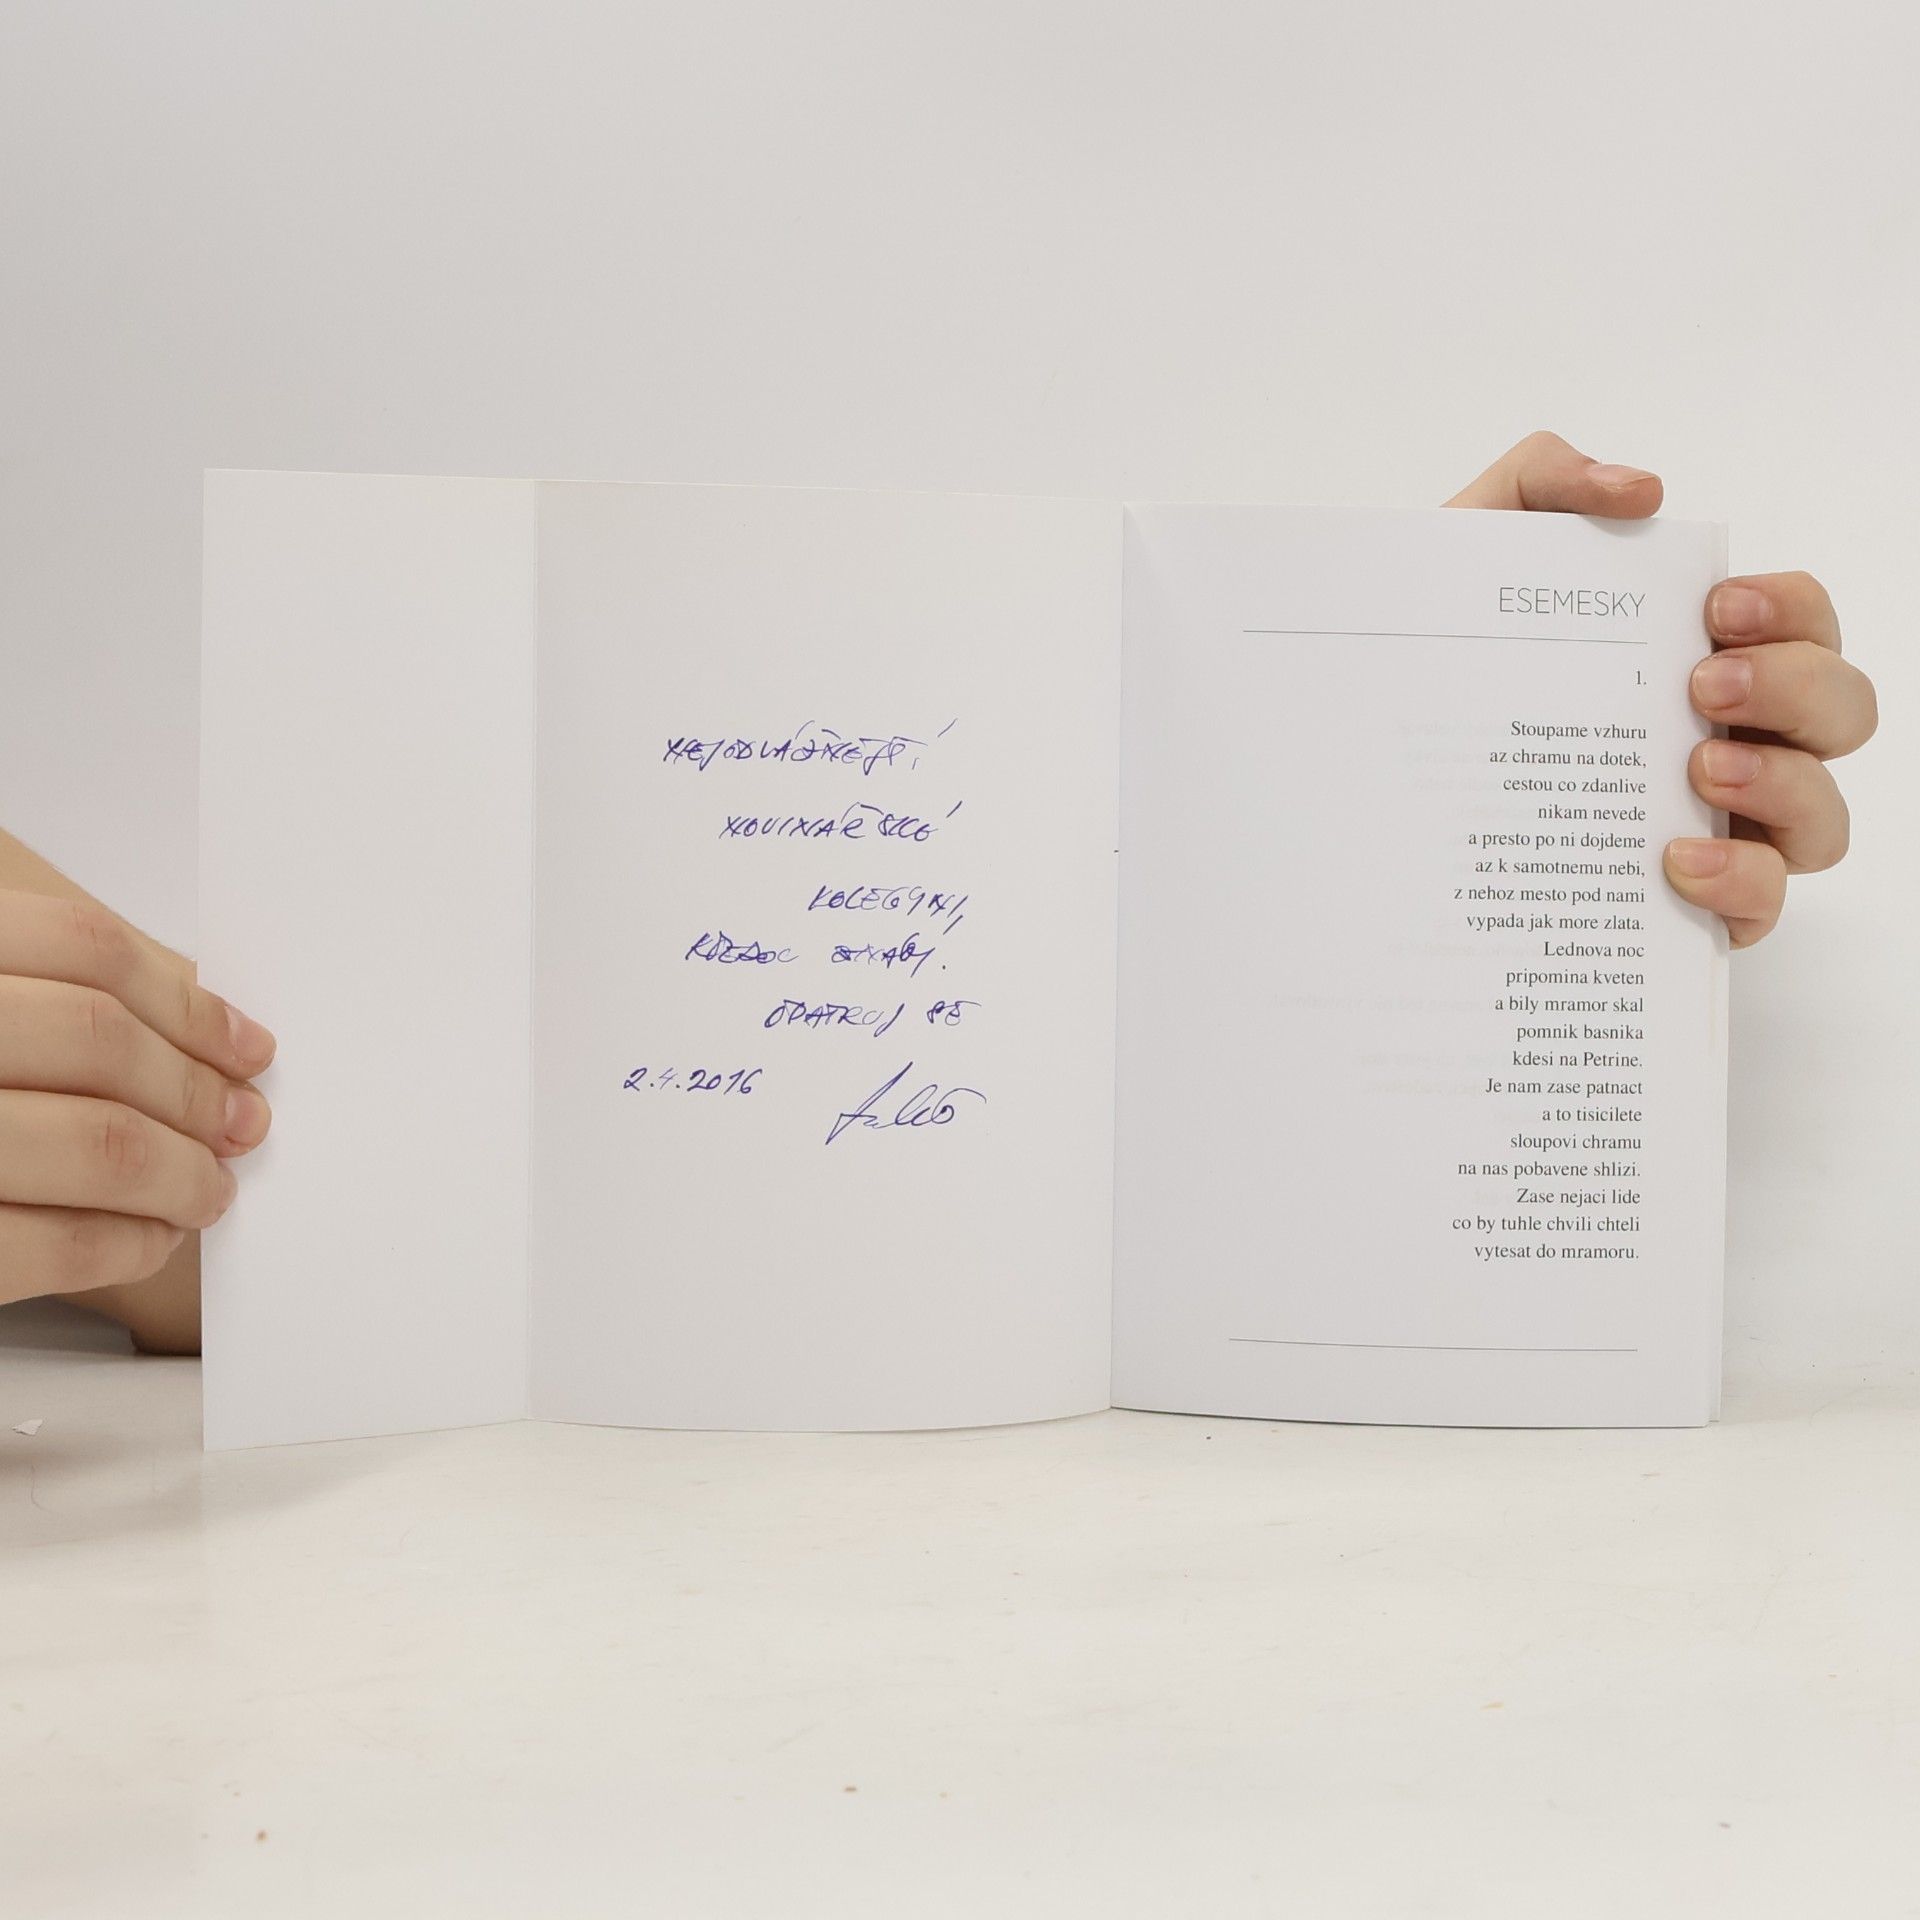 NEJODVÁŽNĚJŠÍ
NOVINÁŘSKÉ
KOLEGYNI,
OPATRUJ SE
2.4.2016
ESEMESKY
1.
Stoupame vzhuru
az chramu na dotek,
cestou co zdanlive
nikam nevede
a presto po ni dojdeme
az k samotnemu nebi,
z nehoz mesto pod nami
vypada jak more zlata.
Lednova noc
pripomina kveten
a bily mramor skal
pomnik basnika
kdesi na Petrine.
Je nam zase patnact
a to tisicilete
sloupovi chramu
na nas pobavene shlizi.
Zase nejaci lide
co by tuhle chvili chteli
vytesat do mramoru.